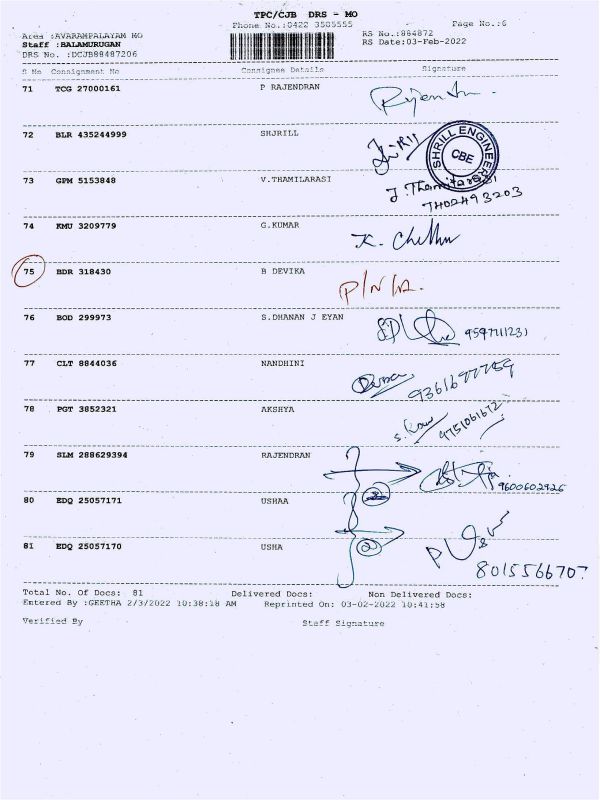 TPC/CJB DRS - MO
Phone No.:0422 3505555
Page No.:6
Area :AVARAMPALAYAM MO
RS No.:884872
Staff :BALAMURUGAN
RS Date:03-Feb-2022
DRS No. :DCJB88487206
S No Consignment No Consignee Details Signature
71 TCG 27000161 P RAJENDRAN
72 BLR 435244999 SHJRILL
SHRILL ENGINEERS
CBE
73 GPM 5153848 V.THAMILARASI J. Thamilarasi
74 KMU 3209779 G.KUMAR
75 BDR 318430 B DEVIKA P/N/A.
76 BOD 299973 S.DHANAN J EYAN
77 CLT 8844036 NANDHINI
78 PGT 3852321 AKSHYA 9751061672
79 SLM 288629394 RAJENDRAN 9600602926
80 EDQ 25057171 USHAA
81 EDQ 25057170 USHA
8015566707
Total No. Of Docs: 81 Delivered Docs: Non Delivered Docs:
Entered By :GEETHA 2/3/2022 10:38:18 AM Reprinted On: 03-02-2022 10:41:58
Verified By Staff Signature